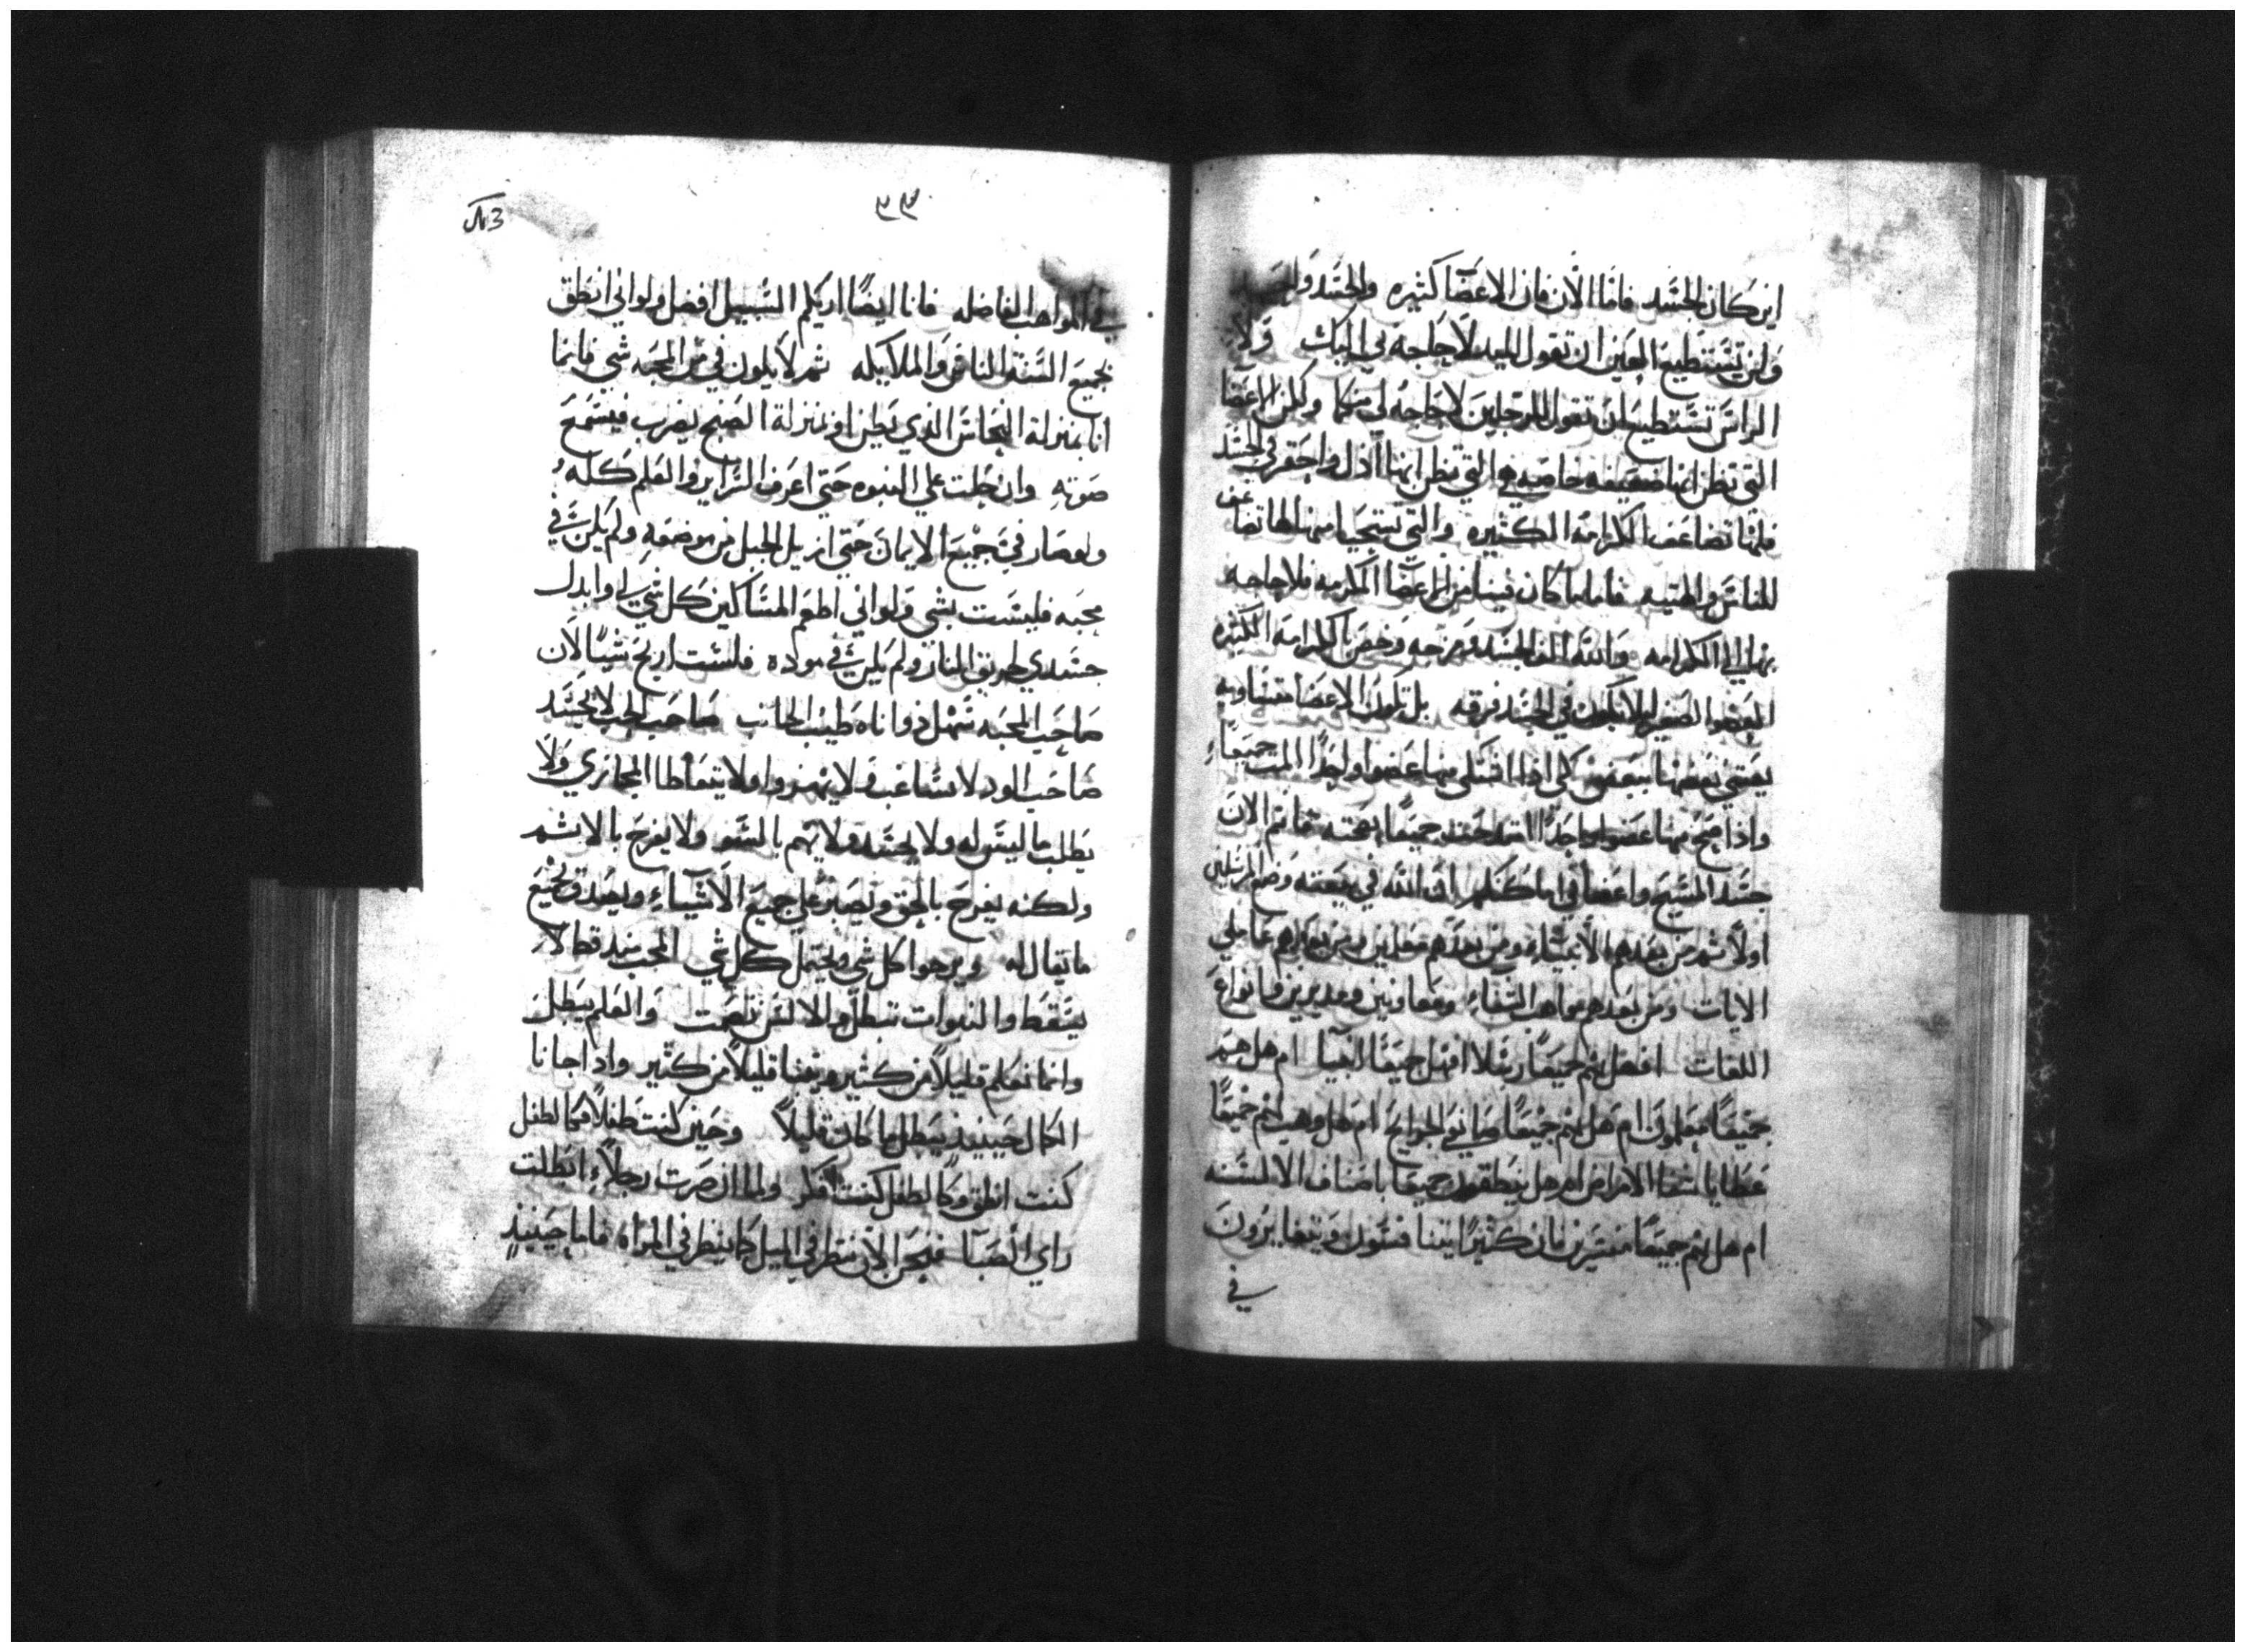 اين كان الجسد فاما الان فان الاعضا كثيره والجسد واحد
ولن تستطيع العين ان تقول لليد لا حاجه لي اليك ولا
الراس تستطيع ان تقول للرجلين لا حاجه لي منكما ولكن الاعضا
التي نظن انها ضعيفه خاصه هي التي نظن انها اذل واحقر في الجسد
فلها تضاعف الكرامه الكثيره والتي يستحيا منها لها تضاعف
للناس والهيبه فاما ما كان فينا من الاعضا المكرمه فلا حاجه
بها الي الكرامه والله الف الجسد ومزجه وخص بالكرامه الكثيره
العضو الصغير ليلا يكون في الجسد فرقه بل تكون الاعضا متساويه
يعتني بعضها ببعض كي اذا اشتكي منها عضوا واحدا المت جميعا
واذا صح منها عضوا واحدا امتدحت جميعا بصحته فانتم الان
جسد المسيح واعضا في اماكنكم ان الله في بيعته وضع المرسلين
اولا ثم من بعدهم الانبياء ومن بعدهم معلمين ومن بعدهم عاملي
الايات ومن بعدهم مواهب الشفاء ومعاونين ومدبرين وانواع
اللغات افهل انتم جميعا رسلا افهل جميعا انبيا ام هل هم
جميعا معلمون ام هل انتم جميعا صانعي الجرايح ام هل وهب لكم جميعا
عطايا شفا الامراض ام هل ينطقون جميعا باصناف الالسنه
ام هل انتم جميعا مفسرين فان كثيرا بيننا فتنون ويتغايرون
في
٩٣
في المواهب الفاضله فانا ايضا اريكم السبيل افضل ولو اني انطق
بجميع السنة الناس والملايكه ثم لا يكون في من المحبه شي فانما
انا بمنزلة النحاس الذي يطن او بمنزلة الصنج يضرب فيسمع
صوته وان حلت علي النبوه حتي اعرف السراير والعلم كله
ولو صار في جميع الايمان حتي ازيل الجبل من موضعه ولم يكن في
محبه فليست بشي ولو اني اطعم المساكين كل شي لي وابدل
جسدي لحريق النار ولم يكن في موده فلست اربح شيا لان
صاحب المحبه تمهل ذو اناه طيب الجانب صاحب الحب لا يحسد
صاحب الود لا يشاغب ولا يهزوا ولا يتعاطا المجازي ولا
يطلب ما ليس له ولا يحتد ولا يهم بالسو ولا يفرح بالاثم
ولكنه يفرح بالحق ويصبر علي جميع الاشياء ويصدق بجميع
ما يقال له ويرجوا كل شي ويحتمل كل شي المحب منذ قط لا
يسقط والنبوات تبطل والالسن تصمت والعلم يبطل
وانما نعلم قليلا من كثير ونتنبا قليلا من كثير واذا جانا
الكمال حينيذ يبطل ما كان قليلا وحين كنت طفلا فكالطفل
كنت انطق وكالطفل كنت افكر ولما ان صرت رجلا ابطلت
راي الصبا فنحن الان ننظر في الميل كما ينظر في المراه فاما حينيذ